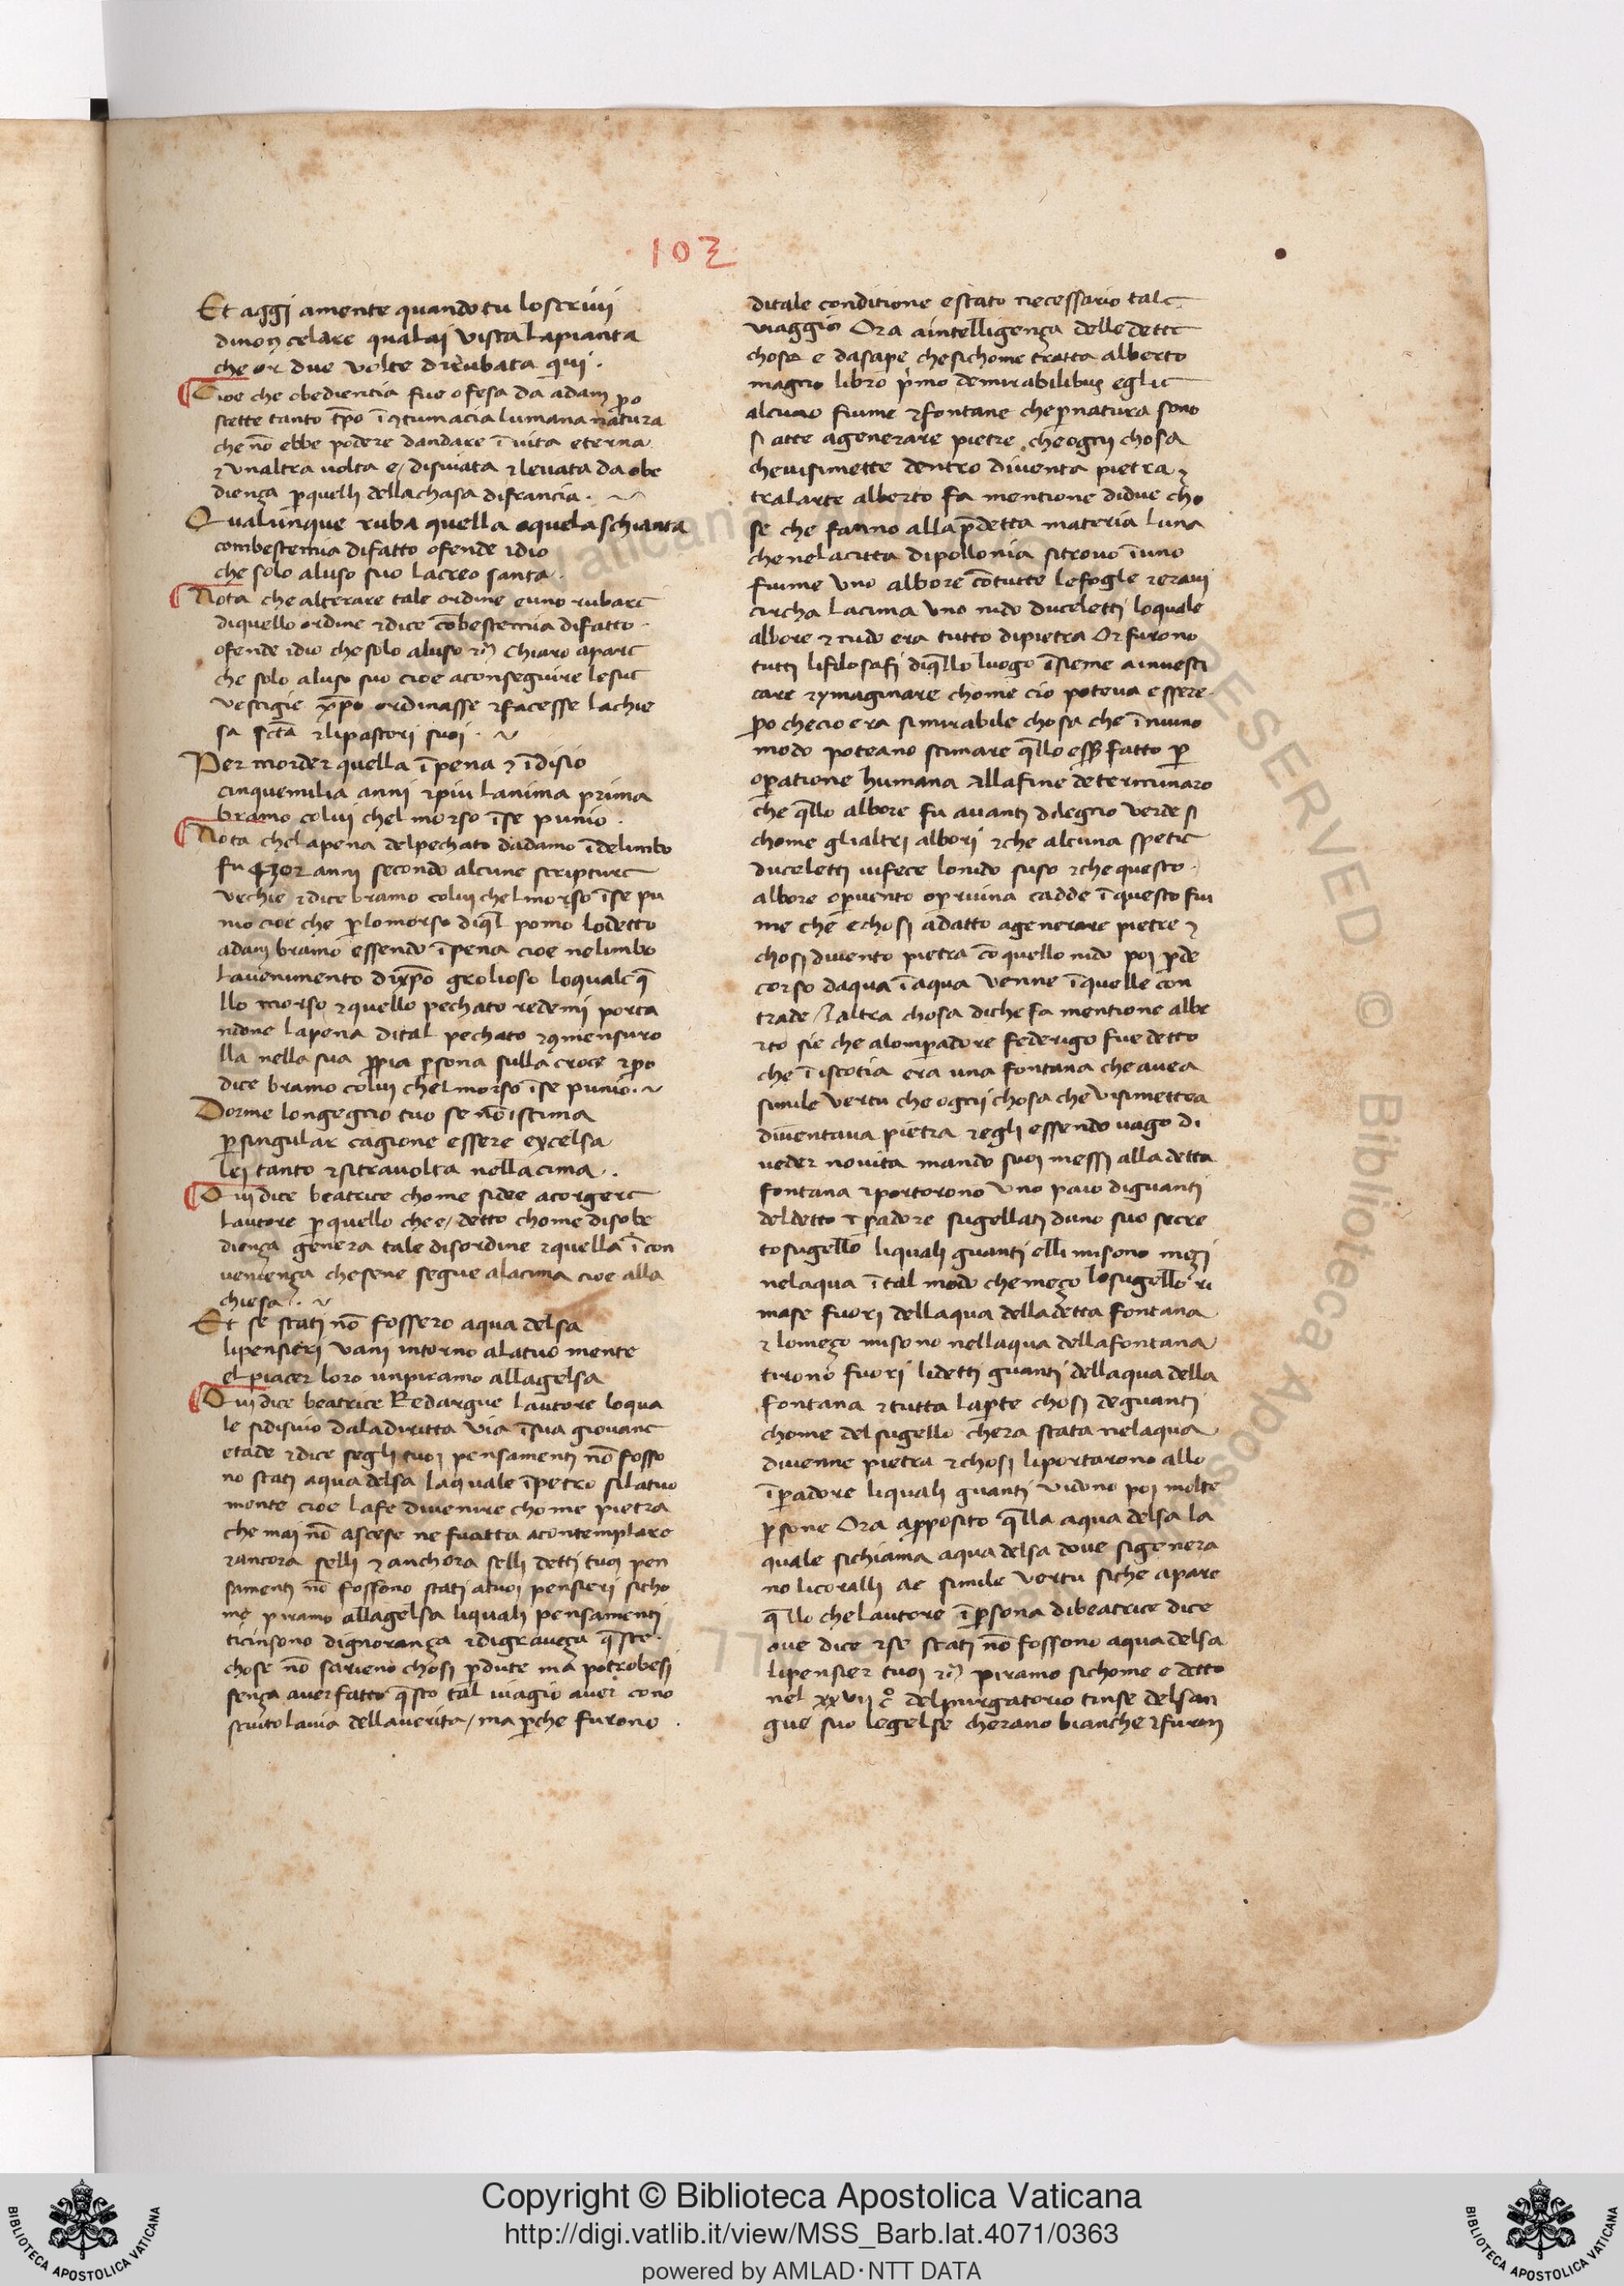 103
Et aggi amente quando tu loscrivi
dinon celare qualai vista lapianta
che or due volte dirubata qui .
Cioe che obedientia fue ofesa da adam po
stette tanto tpo ī ꝯtumacia lumana natura
che nō ebbe podere dandare ī vita eterna
⁊ unaltra volta e / disviata ⁊ levata da obe
diença p quelli della chasa difrancia .
Qualunque ruba quella o quela schianta
combestemia difatto ofende idio
che solo aluso suo lacreo santa .
Nota che alterare tale ordine e uno rubare
diquello ordine ⁊ dice cōbestemia difatto
ofende idio che solo aluso ⁊c̄ Chiaro apare
che solo aluso suo cioe aconseguire lesue
vestigie xp̄o ordinasse ⁊ facesse lachie
sa sc̄ta ⁊ lipastori suoi .
Per morder quella ī pena ⁊ ī disio
cinquemilia anni ⁊ piu lanima prima
bramo colui chel morso īse punio .
Nota che lapena delpechato dadamo ī delimbo
fu 4302 anni secondo alcune scripture
vechie ⁊ dice bramo colui chel morso īse pu
nio cioe che p lomorso diq̄l pomo lodetto
adam bramo essendo ī pena cioe nelimbo
lavenimento dixp̄o grolioso loquale q̄
llo morso ⁊ quello pechato redemi porta
ndone lapena dital pechato ⁊ ꝯmensuro
lla nella sua ppia psona sulla croce ⁊ po
dice bramo colui chel morso īse punio .
Dorme longegnio tuo se nō istima
p singular cagione essere excelsa
lei tanto ⁊ sitravolta nella cima .
Qui dice beatrice chome sidee acorgere
lautore p quello che e / detto chome disobe
diença genera tale disordine ⁊ quella ī con
veniença chesene segue alacima cioe alla
chiesa .
Et se stati nō fossero aqua delsa
lipensieri vani intorno alatuo mente
el piacer loro un piramo allagelsa
Qui dice beatrice Redargue lautore loqua
le sidisvio daladiritta via īsua giovane
etade ⁊ dice segli tuoi pensamenti nō fosso
no stati aqua delsa laquale īpetro silatuo
mente cioe lafe divenire chome pietra
che mai nō ascese ne fu atta acontemplare
⁊ ancora selli ⁊ anchora selli detti tuoi pen
samenti nō fossono stati atuoi pensieri sicho
me piramo allagelsa liquali pensamenti
ticinsono dignorança ⁊ digraveça q̄ste
chose nō sarieno chosi pdute ma potrobesi
sença aver fatto q̄sto tal viagio aver cono
sciuto lavia dellaverita / ma pche furono
ditale conditione estato necessario tale
viaggio Ora aintelligença delle dette
chosa e dasape chesichome tratta alberto
magno libro p̄mo demirabilibus eglie
alcuno fiume ⁊ fontane che p natura sono
si atte agenerare pietre che ogni chosa
chevisimette dentro diventa pietra ⁊
tralarte alberto fa mentione didue cho
se che fanno alla p̄detta materia luna
che nelacitta dipollonia sitrovo ī uno
fiume uno albore cō tutte lefogle ⁊ eravi
circha lacima uno nido duceletti loquale
albore ⁊ nido era tutto dipietra Or furono
tutti lifilosafi diq̄llo luogo īsieme ainvesti
care ⁊ ymaginare chome cio poteva essere
po che cio era si mirabile chosa che ī niuno
modo poteano stimare q̄llo ess̄ fatto p
opatione humana Allafine determinaro
che q̄llo albore fu avanti dilegnio verde si
chome glialtri albori ⁊ che alcuna spetie
duceletti vifece lonido suso ⁊ che questo
albore o p vento o p ruina cadde ī questo fiu
me che e chosi adatto agenerare pietre ⁊
chosi divento pietra cō quello nido poi p de
corso daqua ī aqua venne ī quelle con
trade / laltra chosa diche fa mentione albe
rto sie che alompadore federigo fue detto
che ī iscotia era una fontana che avea
simile vertu che ogni chosa che visimettea
diventava pietra ⁊ egli essendo vago di
veder novita mando suoi messi alla detta
fontana ⁊ portorono uno paio diguanti
deldetto īpadore sugellati duno suo secre
to sugello liquali guanti elli misono meçi
nelaqua ī tal modo che meço losugello ri
mase fuori dellaqua della detta fontana
⁊ lomeço misono nellaqua dellafontana
tirono fuori lidetti guanti dellaqua della
fontana ⁊ tutta lapte chosi deguanti
chome del sugello chera stata nelaqua
divenne pietra ⁊ chosi liportarono allo
īpadore liquali guanti vidono poi molte
psone Ora apposito q̄lla aqua delsa la
quale sichiama aqua delsa dove sigenera
no licoralli ae simile vertu siche apare
q̄llo chelautore ī psona dibeatrice dice
ove dice ⁊ se stati nō fossono aqua delsa
lipensier tuoi ⁊c̄ piramo sichome e detto
nel xxvii c° delpurgatorio tinse delsan
gue suo legelse cherano bianche ⁊ furon
Copyright © Biblioteca Apostolica Vaticana
http://digi.vatlib.it/view/MSS_Barb.lat.4071/0363
powered by AMLAD·NTT DATA
BIBLIOTECA APOSTOLICA VATICANA
BIBLIOTECA APOSTOLICA VATICANA